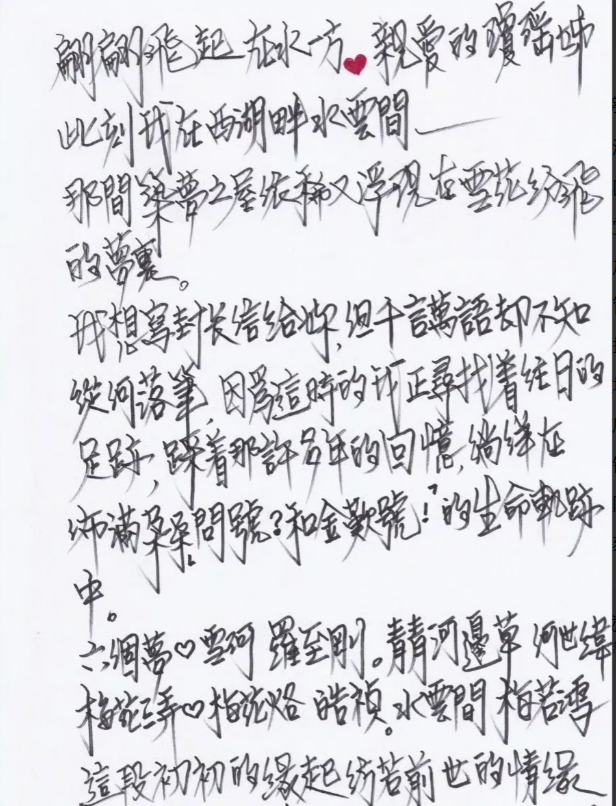 翩翩飛起在水一方❤親愛的瓊瑤姊
此刻我在西湖畔水雲間——
那間築夢之屋依稀又浮現在雪花紛飛
的夢裏。
我想寫封长信給妳,但千言萬語却不知
從何落筆,因為這時的我正尋找着往日的
足跡,踩着那許多年的回憶,徜徉在
佈滿朵朵問號?和金歎號!的生命軌跡
中。
六個夢♡雪珂 羅至剛。青青河邊草 何世緯
梅花三弄♡梅花烙 皓禎。水雲間 梅若鴻
這段初初的緣起彷若前世的情緣